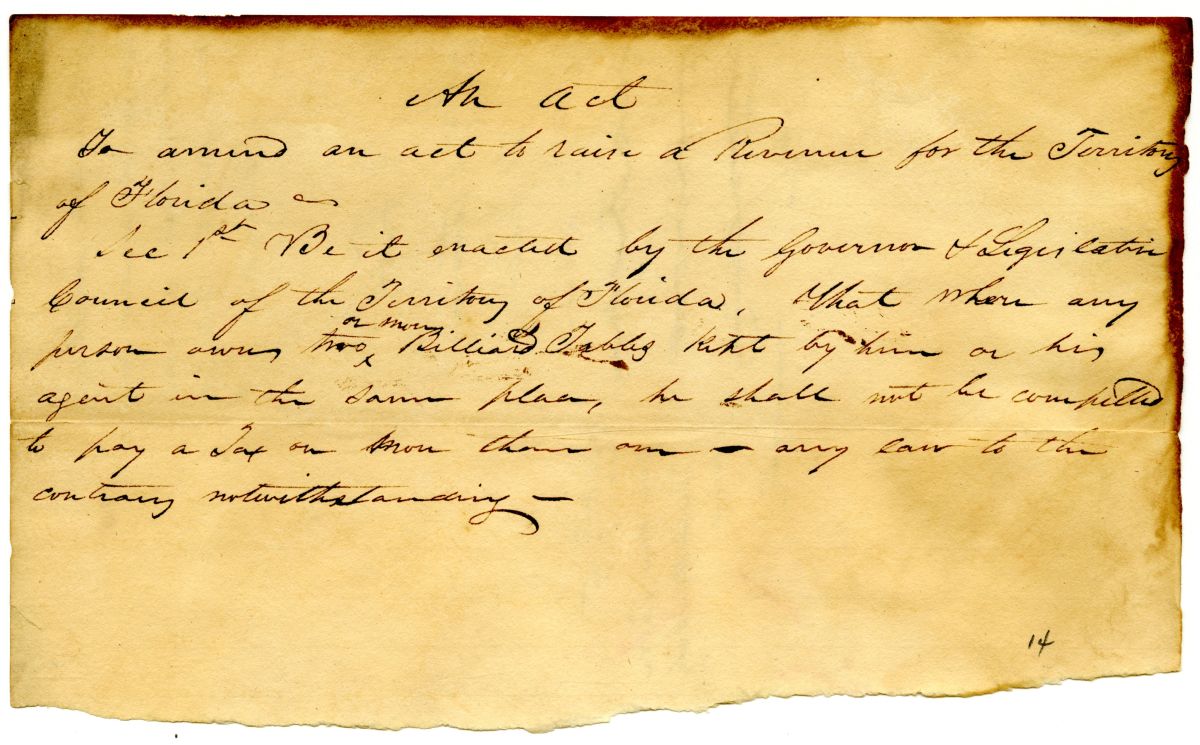 An Act
To amend an act to raise a Revenue for the Territory
of Florida
Sec 1st Be it enacted by the Governor & Legislative
Council of the Territory of Florida, That when any
or more
person owns two Billiard Tables kept by him or his
agent in the same place, he shall not be compelled
to pay a Tax on more than one — any law to the
contrary notwithstanding —
14